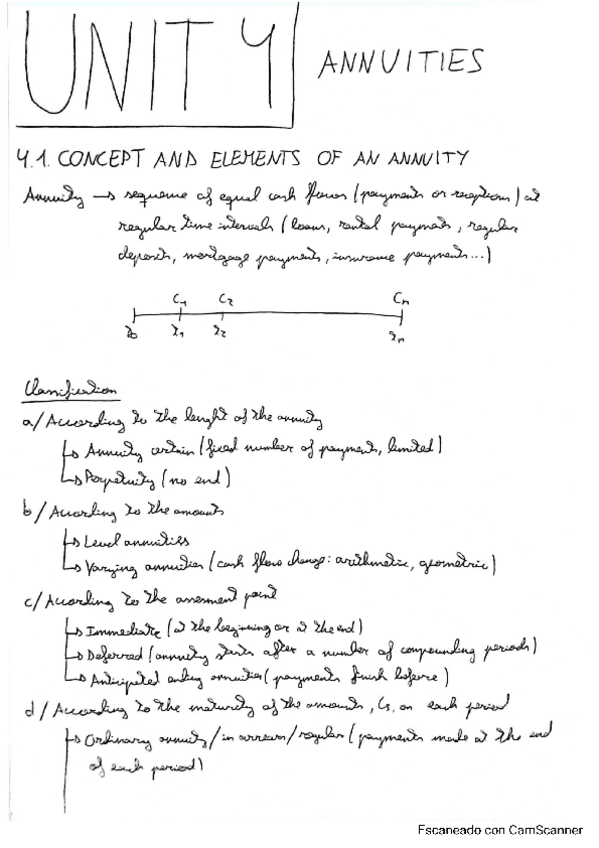 UNIT 4 ANNUITIES
4.1. CONCEPT AND ELEMENTS OF AN ANNUITY
Annuity → sequence of equal cash flows (payments or receptions) at
regular time intervals (loans, rental payments, regular
deposits, mortgage payments, insurance payments...)
C1 C2 Cn
t0 t1 t2 tn
Classification
a/ According to the lenght of the annuity
↳ Annuity certain (fixed number of payments, limited)
↳ Perpetuity (no end)
b/ According to the amounts
↳ Level annuities
↳ Varying annuities (cash flow change: arithmetic, geometric)
c/ According to the assessment point
↳ Immediate (at the beginning or at the end)
↳ Deferred (annuity starts after a number of compounding periods)
↳ Anticipated ending annuities (payments finish before)
d/ According to the maturity of the amounts, Cs, on each period
↳ Ordinary annuity/in arrears/regular (payments made at the end
of each period)
Escaneado con CamScanner